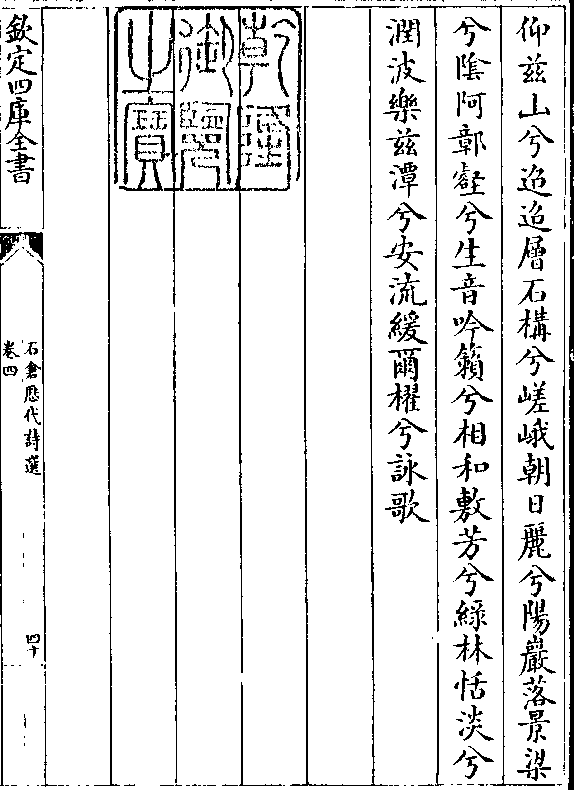 仰兹山兮迢迢層石構兮嵯峨朝日麗兮陽巖落景梁
兮隂阿鄣壑兮生音吟籟兮相和敷芳兮緑林恬淡兮
潤波樂兹潭兮安流緩爾櫂兮詠歌
乾隆
御覽
之寶
欽定四庫全書
石倉歴代詩選
卷四
四十